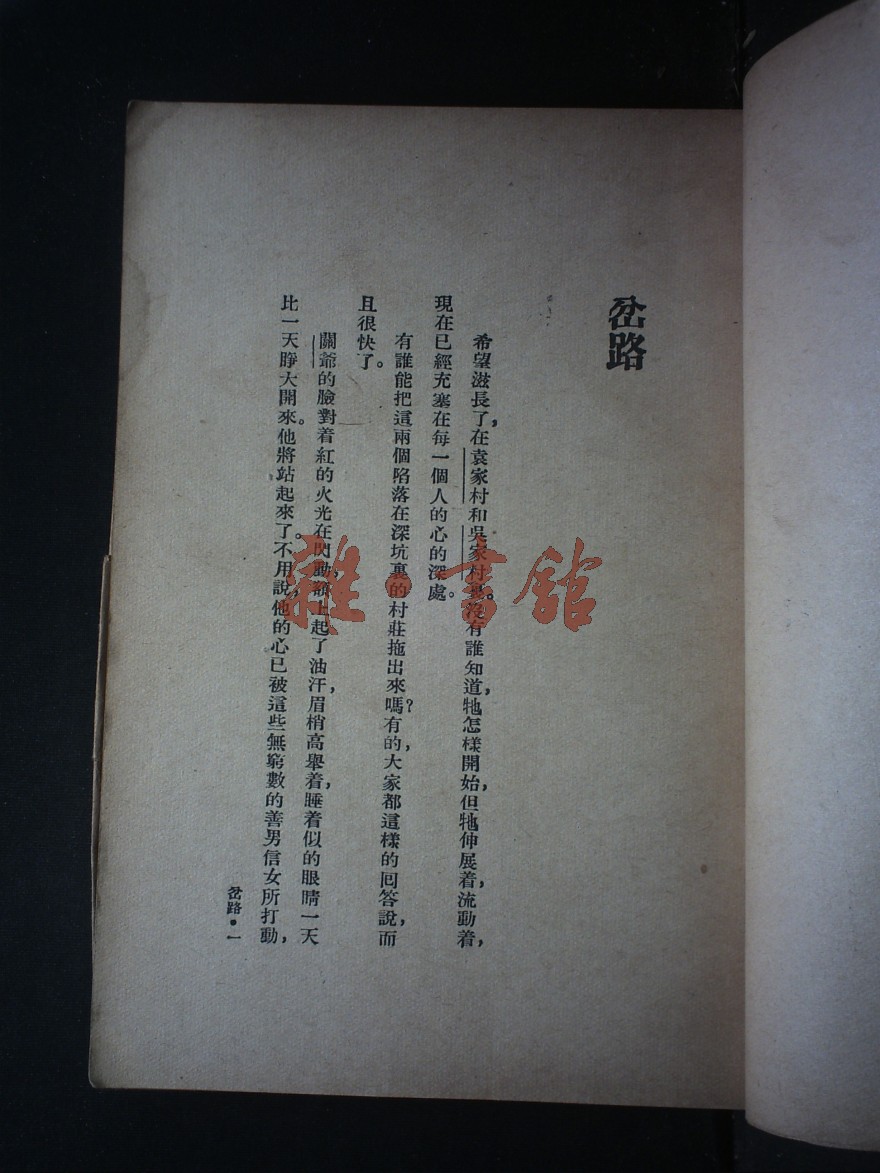 岔路
希望滋長了，在袁家村和吳家村裏。沒有誰知道，牠怎樣開始，但牠伸展着，流動着，
現在已經充塞在每一個人的心的深處。
有誰能把這兩個陷落在深坑裏的村莊拖出來嗎？有的，大家都這樣的回答說，而
且很快了。
關爺的臉對着紅的火光在閃動，額上起了油汗，眉梢高舉着，睡着似的眼睛一天
比一天睜大開來。他將站起來了。不用說，他的心已被這些無窮數的善男信女所打動，
岔路·一
雜·書館